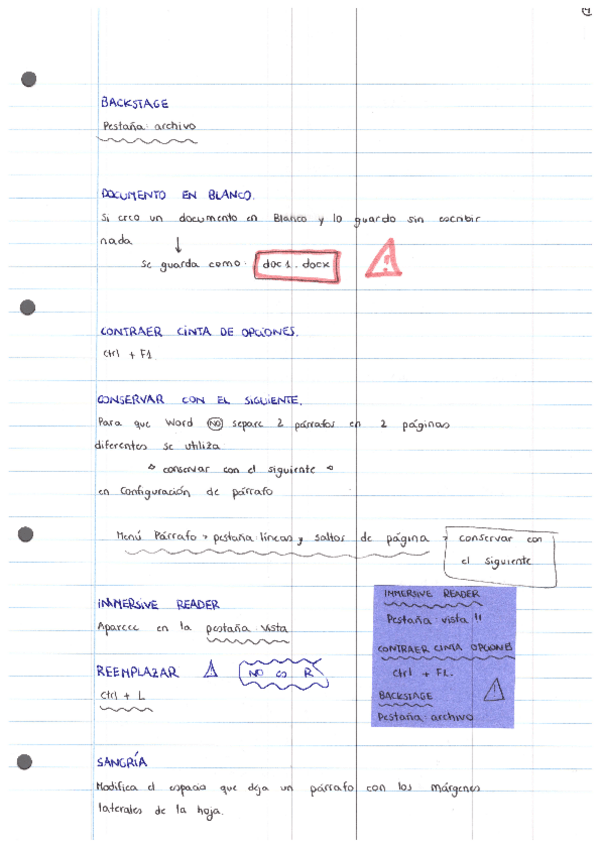 BACKSTAGE
Pestaña: archivo
DOCUMENTO EN BLANCO.
Si creo un documento en Blanco y lo guardo sin escribir
nada
↓
se guarda como: doc1.docx
!
CONTRAER CINTA DE OPCIONES.
Ctrl + F1
CONSERVAR CON EL SIGUIENTE.
Para que Word NO separe 2 párrafos en 2 páginas
diferentes se utiliza
conservar con el siguiente
en Configuración de párrafo
Menú Párrafo > pestaña: líneas y saltos de página > conservar con
el siguiente
IMMERSIVE READER
Aparece en la pestaña: vista
REEMPLAZAR ! NO es R
Ctrl + L
IMMERSIVE READER
Pestaña: vista !!
CONTRAER CINTA OPCIONES
Ctrl + F1.
BACKSTAGE
!
Pestaña: archivo
SANGRÍA
Modifica el espacio que deja un párrafo con los márgenes
laterales de la hoja.